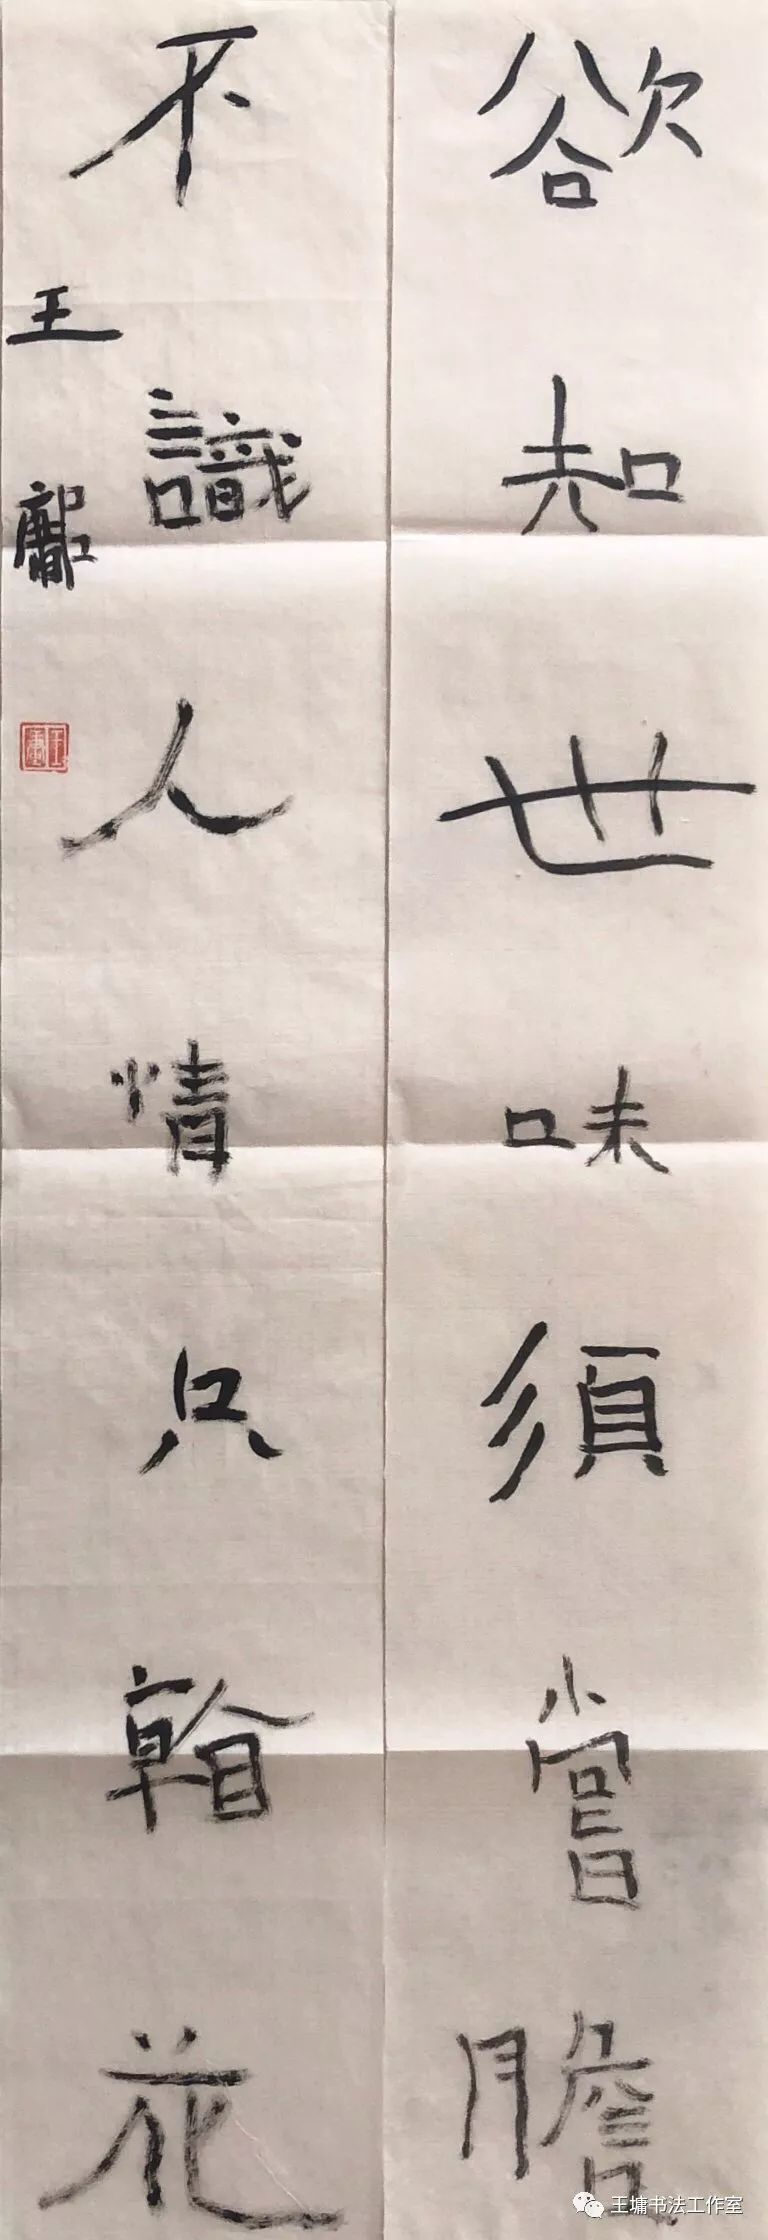 欲知世味須嘗膽
不識人情只看花
王鄘
王墉书法工作室